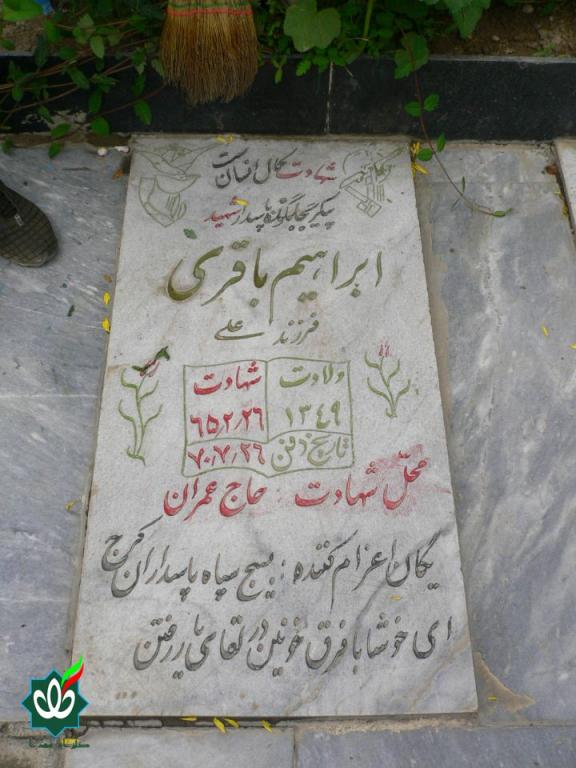 شهادت کمال انسان است
پیکر بخون پاسدار شهید
ابراهیم باقری
فرزند علی
ولادت شهادت
۱۳۴۹ ۶۵٫۲٫۲۶
تاریخ دفن ۷۰٫۷٫۲۶
محل شهادت : حاج عمران
یگان اعزام کننده : بسیج سپاه پاسداران کرج
ای خوشا با فرق خونین در لقای یار رفتن